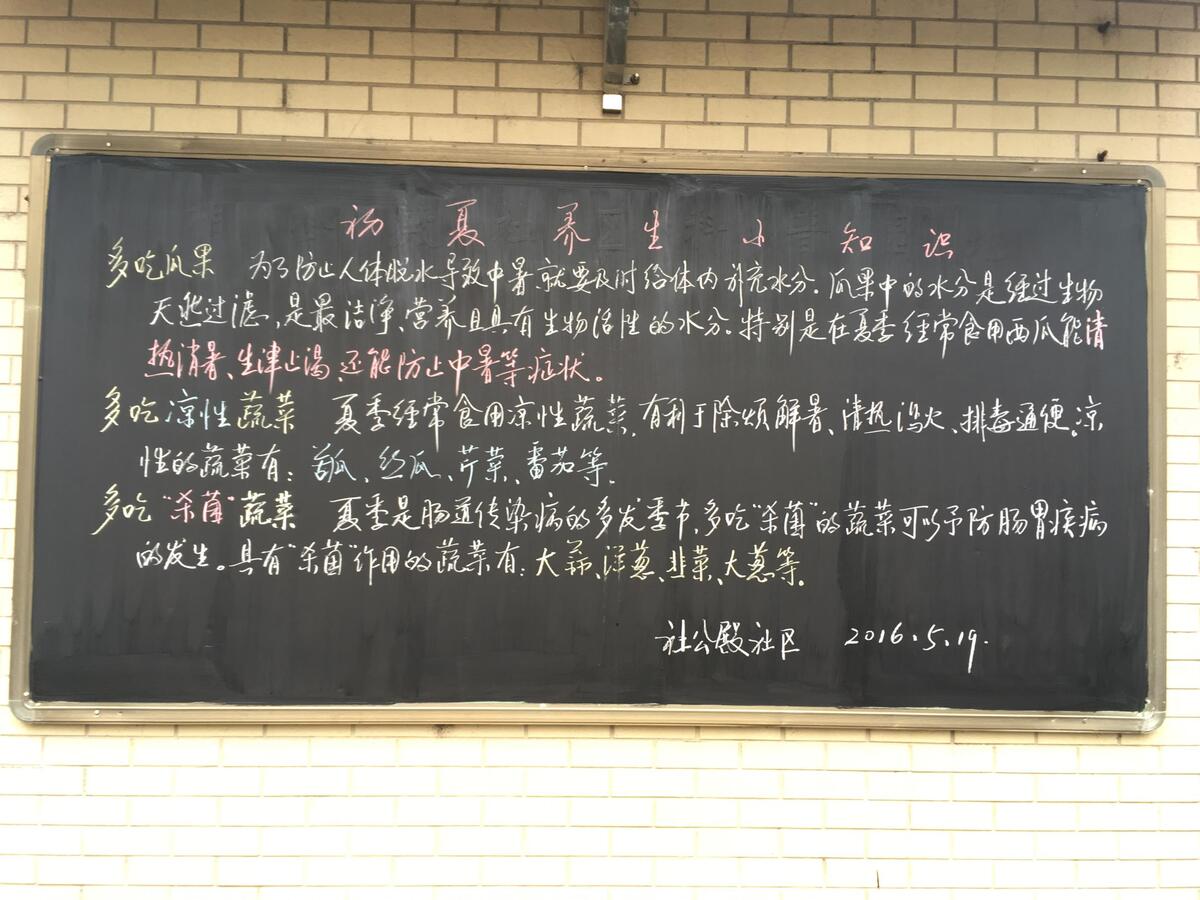 初夏养生小知识
多吃瓜果 为了防止人体脱水导致中暑、就要及时给体内补充水分。瓜果中的水分是经过生物
天然过滤,是最洁净、营养且具有生物活性的水分。特别是在夏季经常食用西瓜能清
热消暑、生津止渴、还能防止中暑等症状。
多吃凉性蔬菜 夏季经常食用凉性蔬菜,有利于除烦解暑、清热泻火、排毒通便。凉
性的蔬菜有:苦瓜、丝瓜、芹菜、番茄等。
多吃“杀菌”蔬菜 夏季是肠道传染病的多发季节,多吃“杀菌”的蔬菜可以予防肠胃疾病
的发生。具有“杀菌”作用的蔬菜有:大蒜、洋葱、韭菜、大葱等。
社公殿社区 2016.5.19.